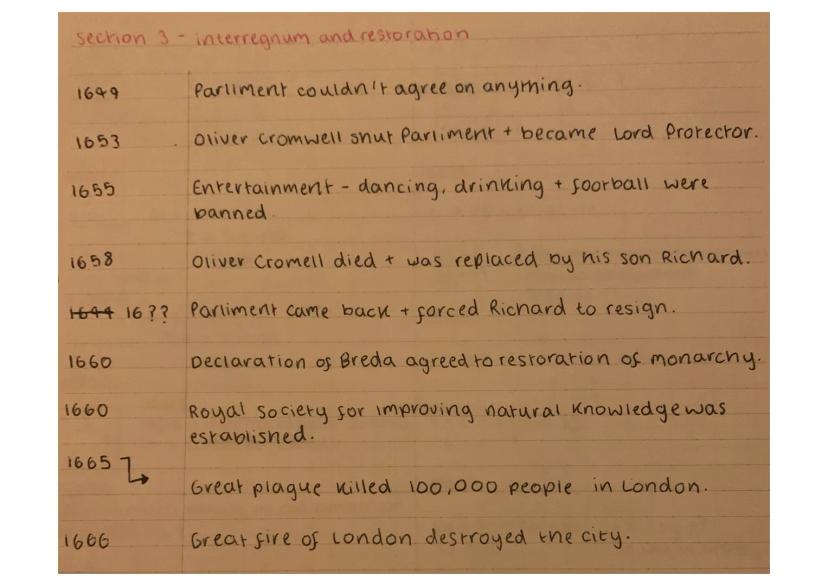 section 3 - interregnum and restoration
1649 Parliment couldn't agree on anything.
1653 Oliver Cromwell shut Parliment + became Lord Protector.
1655 Entertainment - dancing, drinking + football were
banned.
1658 Oliver Cromell died + was replaced by his son Richard.
1644 16?? Parliment came back + forced Richard to resign.
1660 Declaration of Breda agreed to restoration of monarchy.
1660 Royal Society for improving natural knowledge was
established.
1665
Great plague killed 100,000 people in London.
1666 Great fire of London destroyed the city.